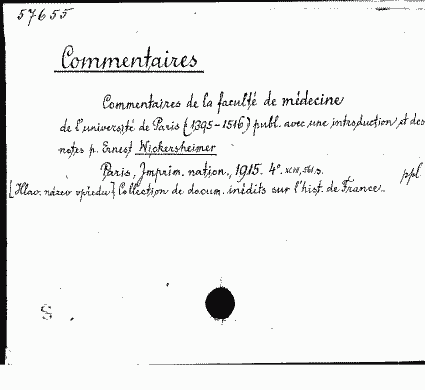 57655
Commentaires
Commentaires de la faculté de médecine
de l'université de Paris (1395-1516) publ. avec une introduction et des
notes p. Ernest Wickersheimer
Paris, Imprim. nation., 1915. 4°. XCVII, 561 s. ppl
[Hlav. název vpředu] Collection de docum. inédits sur l'hist. de France.
S.